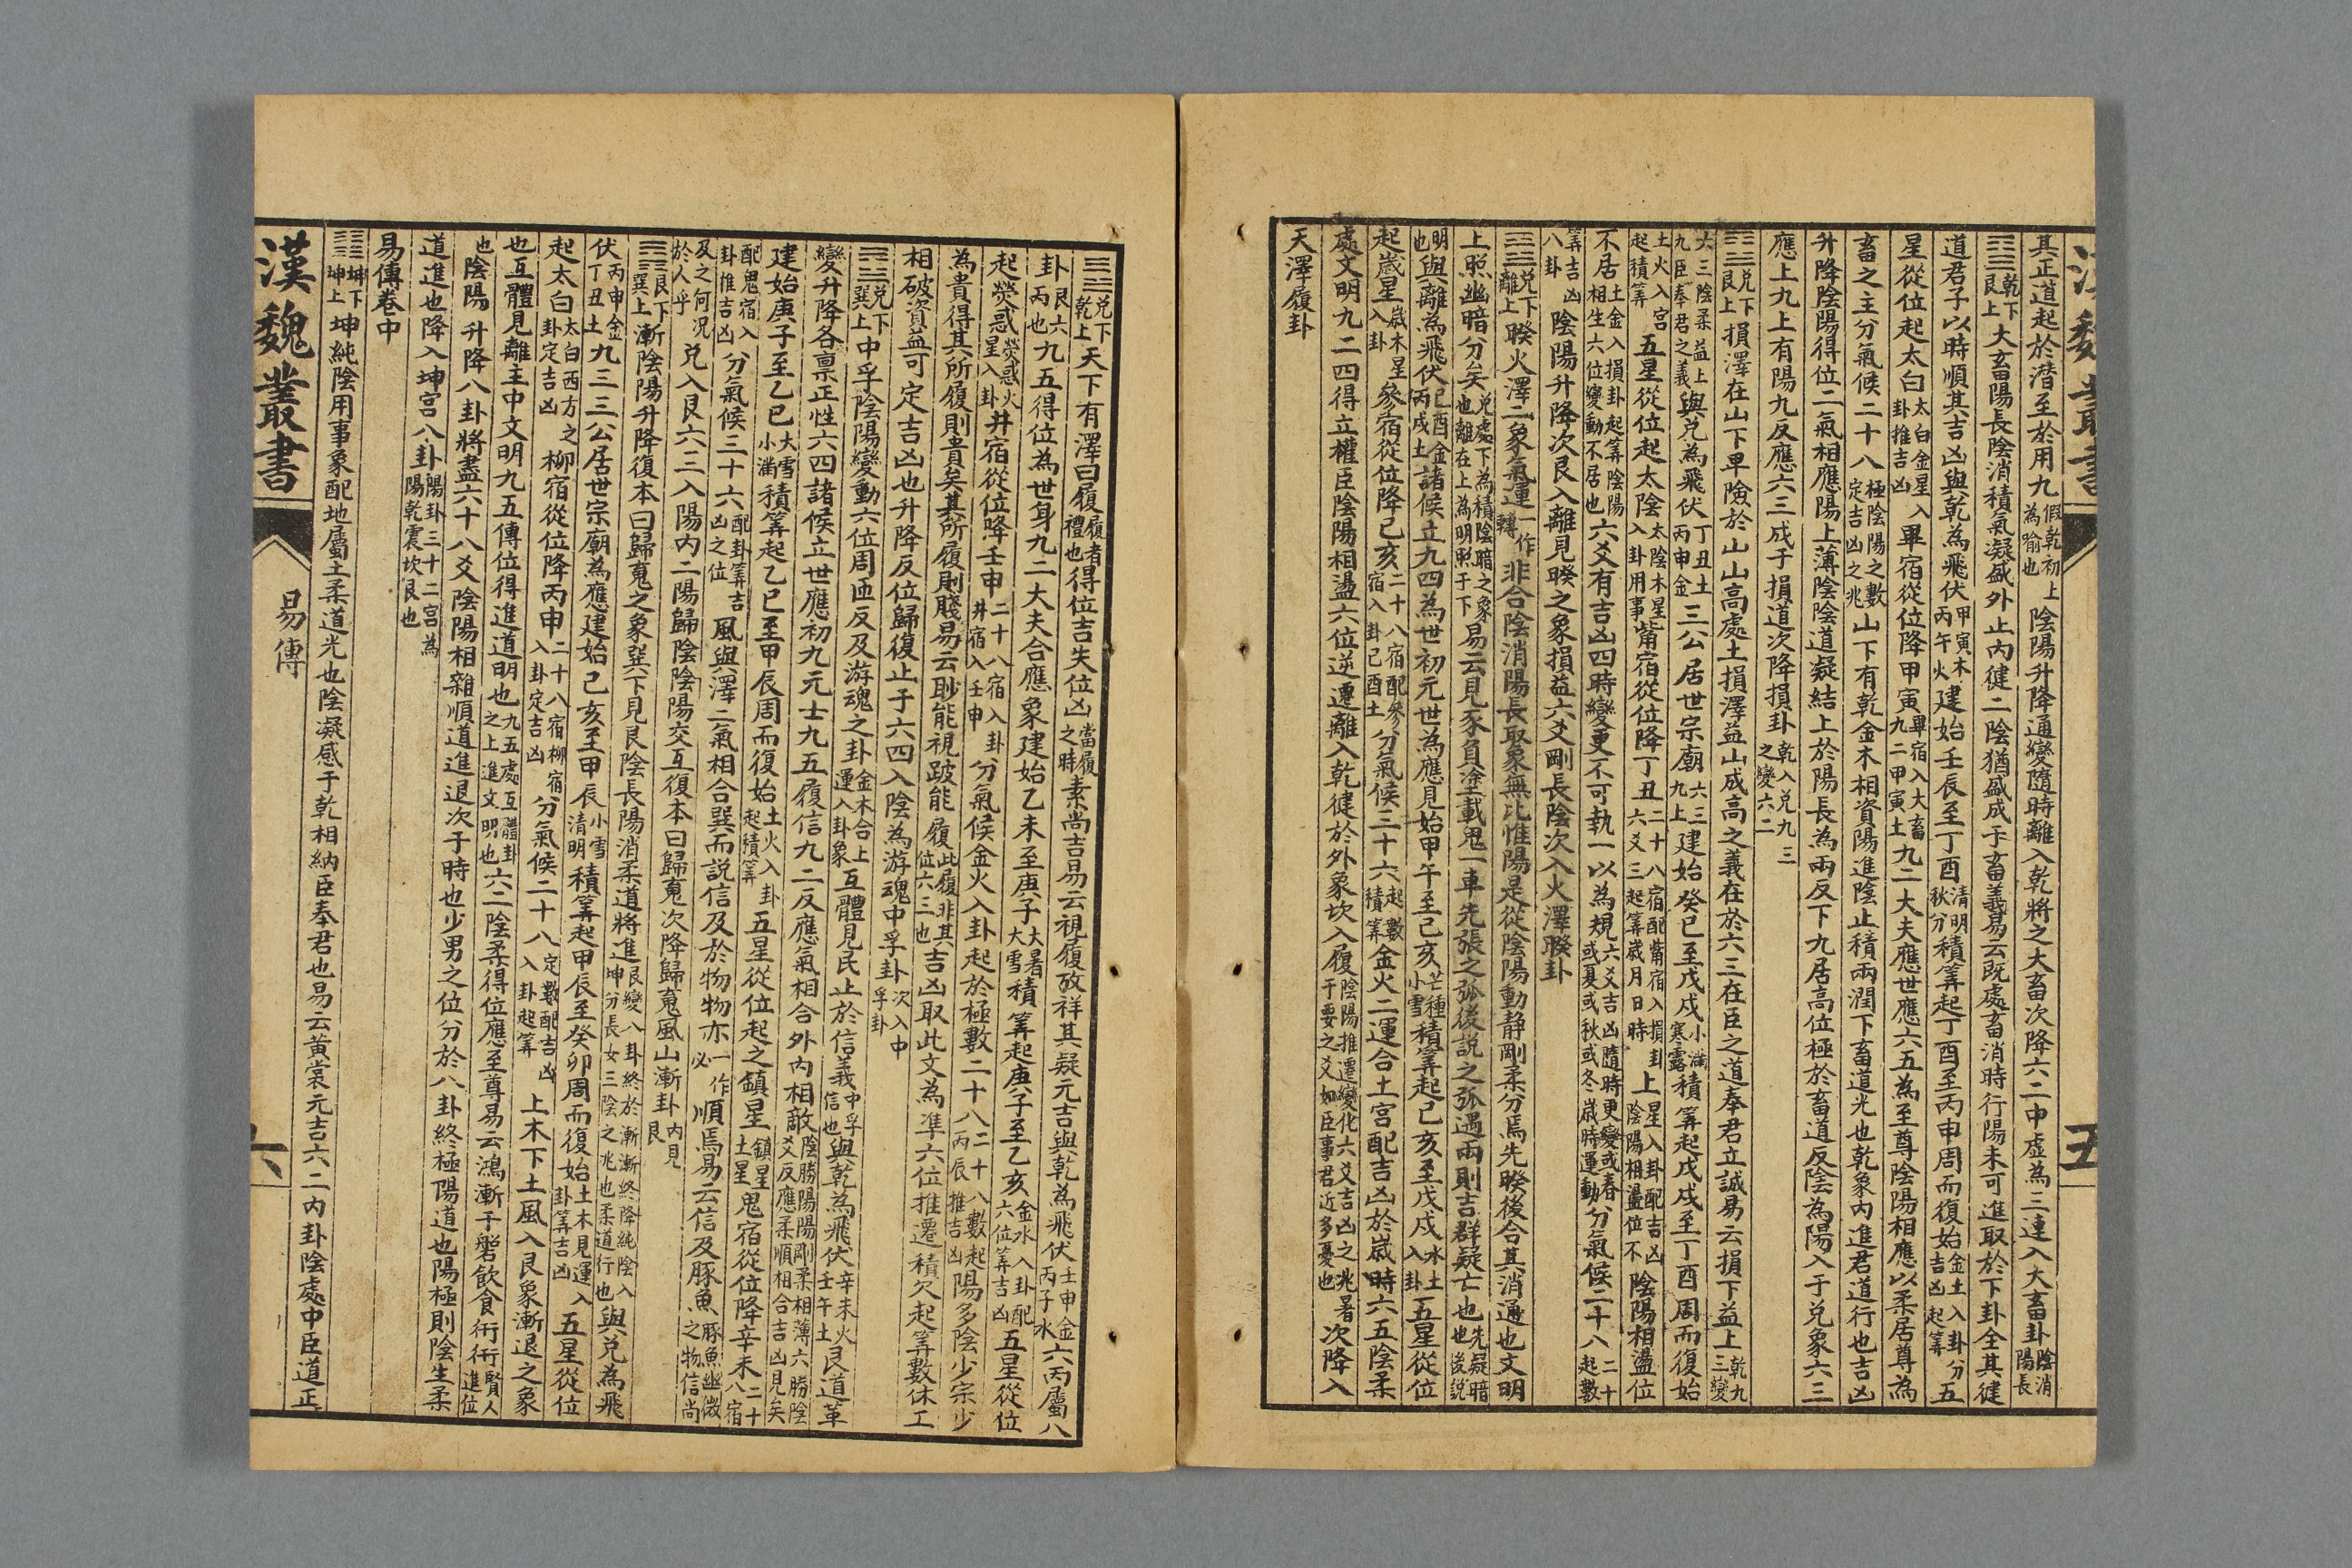 漢魏叢書
五
其正道起於潛至於用九假乾初上為喻也陰陽升降通變隨時離入乾將之大畜次降六二中虛為三連入大畜卦陰消陽長
乾下艮上大畜陽長陰消積氣凝盛外止內健二陰猶盛成于畜義易云既處畜消時行陽未可進取於下卦全其健
道君子以時順其吉凶與乾為飛伏甲寅木丙午火建始壬辰至丁酉清明秋分積筭起丁酉至丙申周而復始金土入卦分吉凶起筭五
星從位起太白太白金星入卦推吉凶畢宿從位降甲寅畢宿入大畜九二甲寅土九二大夫應世應六五為至尊陰陽相應以柔居尊為
畜之主分氣候二十八極陰陽之數定吉凶之兆山下有乾金木相資陽進陰止積雨潤下畜道光也乾象內進君道行也吉凶
升降陰陽得位二氣相應陽上薄陰陰道凝結上於陽長為雨反下九居高位極於畜道反陰為陽入于兌象六三
應上九上有陽九反應六三成于損道次降損卦乾入兌九三之變六二
兌下艮上損澤在山下卑險於山山高處土損澤益山成高之義在於六三在臣之道奉君立誠易云損下益上乾九三變
六三陰柔益上九臣奉君之義與兌為飛伏丁丑土丙申金三公居世宗廟六三九上建始癸巳至戊戌小滿寒露積筭起戊戌至丁酉周而復始
土火入宮起積筭五星從位起太陰太陰木星入卦用事觜宿從位降丁丑二十八宿配觜宿入損卦六爻三起筭歲月日時上星入卦配吉凶陰陽相盪位不陰陽相盪位
不居土金入損卦起筭陰陽相生六位變動不居也六爻有吉凶四時變更不可執一以為規六爻吉凶隨時更變或春或夏或秋或冬歲時運動分氣候二十八二十起數
筭吉凶八卦陰陽升降次艮入離見暌之象損益六爻剛長陰次入火澤暌卦
兌下離上暌火澤二象氣運一作轉非合陰消陽長取象無比惟陽是從陰陽動靜剛柔分焉先暌後合其消通也文明
上照幽暗分矣兌處下為積陰暗之象也離在上為明照于下易云見豕負塗載鬼一車先張之弧後說之弧遇雨則吉群疑亡也先疑暗也後說
明也與離為飛伏己酉金丙戌土諸侯立九四為世初元世為應見始甲午至己亥芒種小雪積筭起己亥至戊戌水土入卦五星從位
起歲星歲木星入卦參宿從位降己亥二十八宿配參宿入卦己酉土分氣候三十六起數積筭金火二運合土宮配吉凶於歲時六五陰柔
處文明九二四得立權臣陰陽相盪六位逆遷離入乾健於外象坎入履陰陽推遷變化六爻吉凶之兆于要之爻如臣事君近多憂也暑次降入
天澤履卦
兌下乾上天下有澤曰履履者禮也得位吉失位凶當履之時素尚吉易云視履攷祥其疑元吉與乾為飛伏壬申金丙子水六丙屬八
卦艮六丙也九五得位為世身九二大夫合應象建始乙未至庚子大暑大雪積筭起庚子至乙亥金水入卦配六位筭吉凶五星從位
起熒惑熒惑火星入卦井宿從位降壬申二十八宿入卦井宿入壬申分氣候金火入卦起於極數二十八二十八數起丙辰推吉凶陽多陰少宗少
為貴得其所履則貴矣其所履則賤易云眇能視跛能履此履非其位六三也吉凶取此文為準六位推遷積欠起筭數休工
相破資益可定吉凶也升降反位歸復止于六四入陰為游魂中孚卦次入中孚卦
兌下巽上中孚陰陽變動六位周匝反及游魂之卦金木合上運入卦象互體見艮止於信義中孚信也與乾為飛伏辛未火壬午土艮道革
變升降各稟正性六四諸候立世應初九元士九五履信九二反應氣相合外內相敵陰勝陽陽剛柔相薄六勝陰爻反應柔順相合吉凶見矣
建始庚子至乙巳大雪小滿積筭起乙巳至甲辰周而復始土火入卦起積筭五星從位起之鎮星鎮星土星鬼宿從位降辛未二十八宿
配鬼宿入卦推吉凶分氣候三十六配卦筭吉凶之位風與澤二氣相合巽而說信及於物物亦一作必順焉易云信及豚魚豚魚幽微之物信尚
及之何況於人乎兌入艮六三入陽內二陽歸陰陰陽交互復本曰歸䰟次降歸䰟風山漸卦內見艮
艮下巽上漸陰陽升降復本曰歸䰟之象巽下見艮陰長陽消柔道將進艮變八卦終於漸漸終降純陰入坤分長女三陰之兆也柔道行也與兌為飛
伏丙申金丁丑土九三三公居世宗廟為應建始己亥至甲辰小雪清明積筭起甲辰至癸卯周而復始土木見運入卦筭吉凶五星從位
起太白太白西方之卦定吉凶柳宿從位降丙申二十八宿柳宿入卦定吉凶分氣候二十八定數配吉凶入卦起筭上木下土風入艮象漸退之象
也互體見離主中文明九五傳位得進道明也九五處互體卦之上進文明也六二陰柔得位應至尊易云鴻漸于磐飲食衎衎賢人進位
也陰陽升降八卦將盡六十八爻陰陽相雜順道進退次于時也少男之位分於八卦終極陽道也陽極則陰生柔
道進也降入坤宮八卦陽卦三十二宮為陽乾震坎艮也
易傳卷中
坤下坤上坤純陰用事象配地屬土柔道光也陰凝感于乾相納臣奉君也易云黃裳元吉六二內卦陰處中臣道正
漢魏叢書
易傳
六